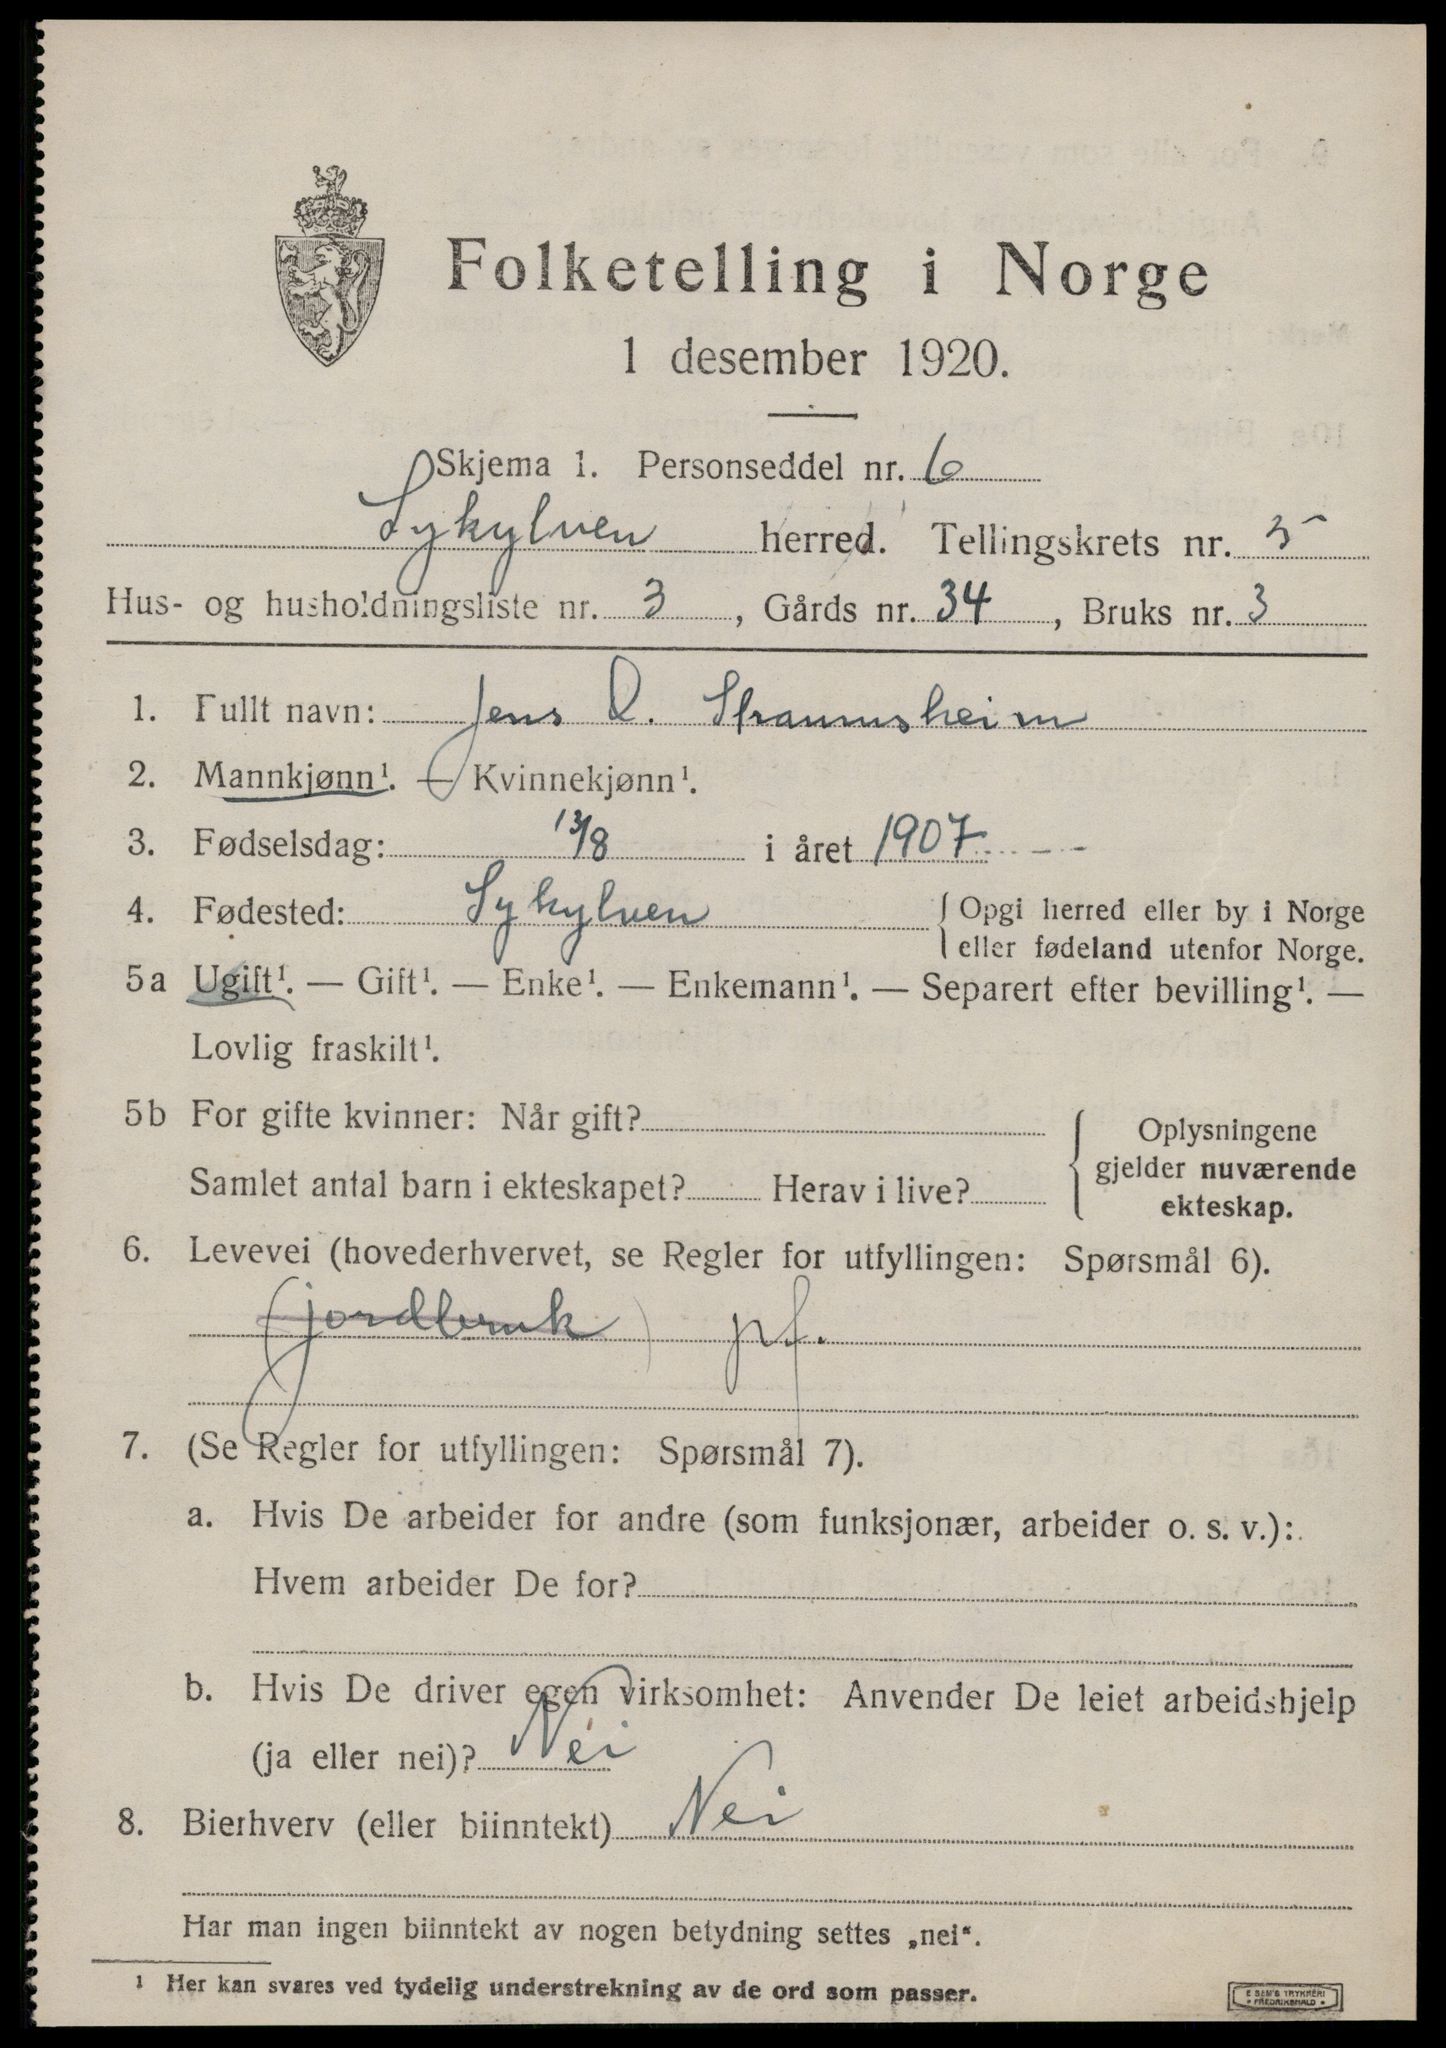 Folketelling i Norge
1 desember 1920.
Skjema 1. Personseddel nr. 6
Sykylven herred. Tellingskrets nr. 5
Hus- og husholdningsliste nr. 3, Gårds nr. 34, Bruks nr. 3
1. Fullt navn: Jens O. Straumsheim
2. Mannkjønn¹. — Kvinnekjønn¹.
3. Fødselsdag: 13/8 i året 1907
4. Fødested: Sykylven { Opgi herred eller by i Norge
eller fødeland utenfor Norge.
5a Ugift¹. — Gift¹. — Enke¹. — Enkemann¹. — Separert efter bevilling¹. —
Lovlig fraskilt¹.
5b For gifte kvinner: Når gift?
Samlet antal barn i ekteskapet? Herav i live?
Oplysningene
gjelder nuværende
ekteskap.
6. Levevei (hovederhvervet, se Regler for utfyllingen: Spørsmål 6).
(jordbruk) pf.
7. (Se Regler for utfyllingen: Spørsmål 7).
a. Hvis De arbeider for andre (som funksjonær, arbeider o. s. v.):
Hvem arbeider De for?
b. Hvis De driver egen virksomhet: Anvender De leiet arbeidshjelp
(ja eller nei)? Nei
8. Bierhverv (eller biinntekt) Nei
Har man ingen biinntekt av nogen betydning settes „nei“.
1 Her kan svares ved tydelig understrekning av de ord som passer.
E SEM'S TRYKKERI
FREDRIKSHALD